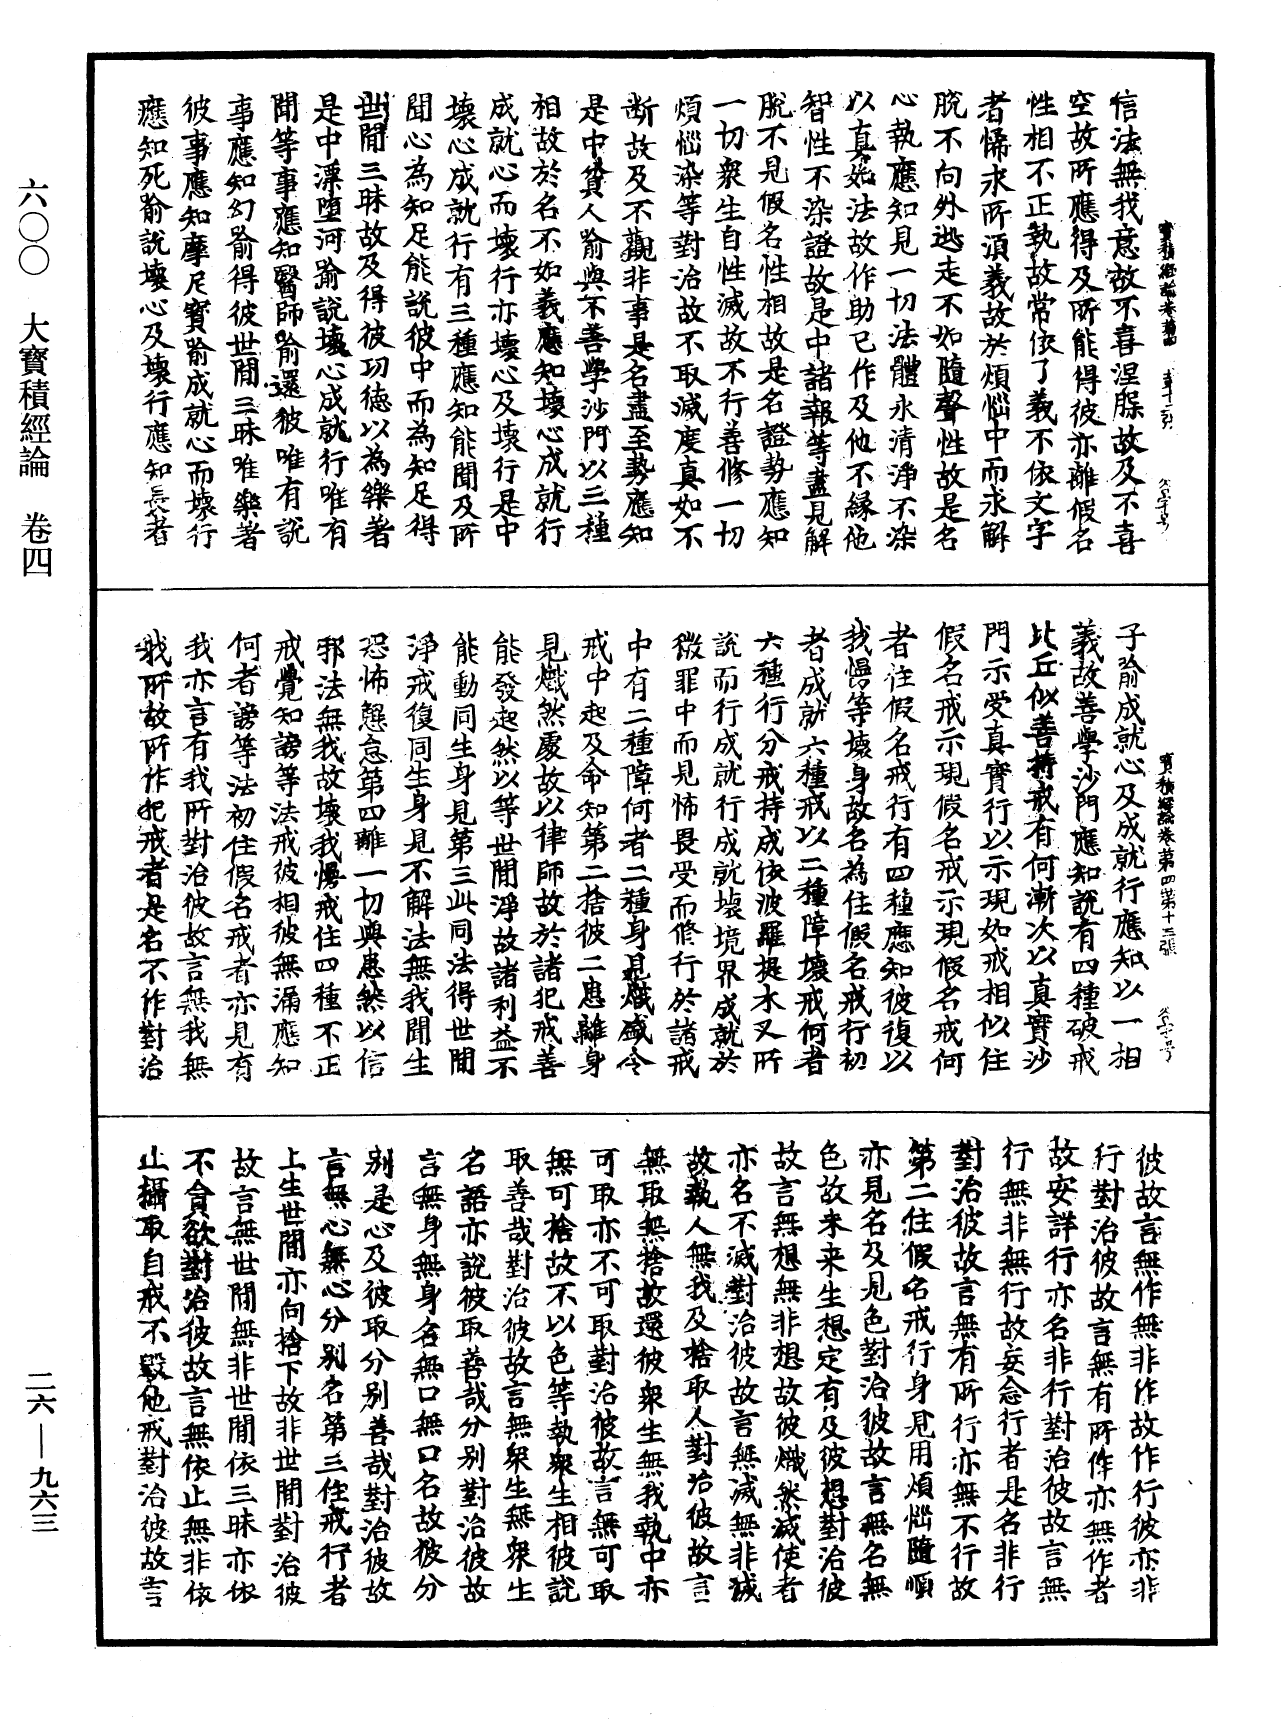 六〇〇　大寶積經論　卷四
二六—九六三
信法無我意故不喜涅槃故及不喜
空故所應得及所能得彼亦離假名
性相不正執故常依了義不依文字
者悕求所須義故於煩惱中而求解
脫不向外逃走不如隨聲性故是名
心執應知見一切法體永清淨不染
以真如法故作助已作及他不緣他
智性不染證故是中諸報等盡見解
脫不見假名性相故是名證勢應知
一切衆生自性滅故不行善修一切
煩惱染等對治故不取滅度真如不
断故及不觀非事是名盡至勢應知
是中貧人喻與不善學沙門以三種
相故於名不如義應知壞心成就行
成就心而壞行亦壞心及壞行是中
壞心成就行有三種應知能聞及所
聞心為知足能說彼中而為知足得
世間三昧故及得彼功德以為樂著
是中漂墮河喻說壞心成就行唯有
聞等事應知醫師喻還彼唯有說
事應知幻喻得彼世間三昧唯樂著
彼事應知摩尼寶喻成就心而壞行
應知死喻說壞心及壞行應知長者
寶積經論卷第四　第十三張
子喻成就心及成就行應知以一相
義故善學沙門應知說有四種破戒
比丘似善持戒有何漸次以真實沙
門示受真實行以示現如戒相似住
假名戒示現假名戒示現假名戒何
者住假名戒行有四種應知彼復以
我慢等壞身故名為住假名戒行初
者成就六種戒以二種障壞戒何者
六種行分戒持成依波羅提木叉所
說而行成就行成就境界成就於
微罪中而見怖畏受而修行於諸戒
中有二種障何者二種身見熾盛令
戒中起及命知第二捨彼二患離身
見熾然處故以律師故於諸犯戒善
能發起然以等世間淨故諸利益不
能動同生身見第三此同法得世間
淨戒復同生身見不解法無我聞生
恐怖懈怠第四離一切與患然以信
邪法無我故壞我慢戒住四種不正
戒覺知謗等法戒彼相彼無漏應知
何者謗等法初住假名戒者亦見有
我亦言有我所對治彼故言無我無
我所故所作犯戒者是名不作對治
彼故言無作無非作故作行彼亦非
行對治彼故言無有所作亦無作者
故安詳行亦名非行對治彼故言無
行無非無行故妄念行者是名非行
對治彼故言無有所行亦無不行故
第二住假名戒行身見用煩惱隨順
亦見名及見色對治彼故言無名無
色故未來生想定有及彼想對治彼
故言無想無非想故彼熾然滅使者
亦名不滅對治彼故言無滅無非滅
故執人無我及捨取人對治彼故言
無取無捨故還彼衆生無我執中亦
可取亦不可取對治彼故言無可取
無可捨故不以色等執衆生相彼說
取善哉對治彼故言無衆生無衆生
名語亦說彼取善哉分別對治彼故
言無身無身名無口無口名故彼分
別是心及彼取分別善哉對治彼故
言無心無心分別名第三住戒行者
上生世間亦向捨下故非世間對治彼
故言無世間無非世間依三昧亦依
不貪欲對治彼故言無依止無非依
止攝取自戒不毀他戒對治彼故言